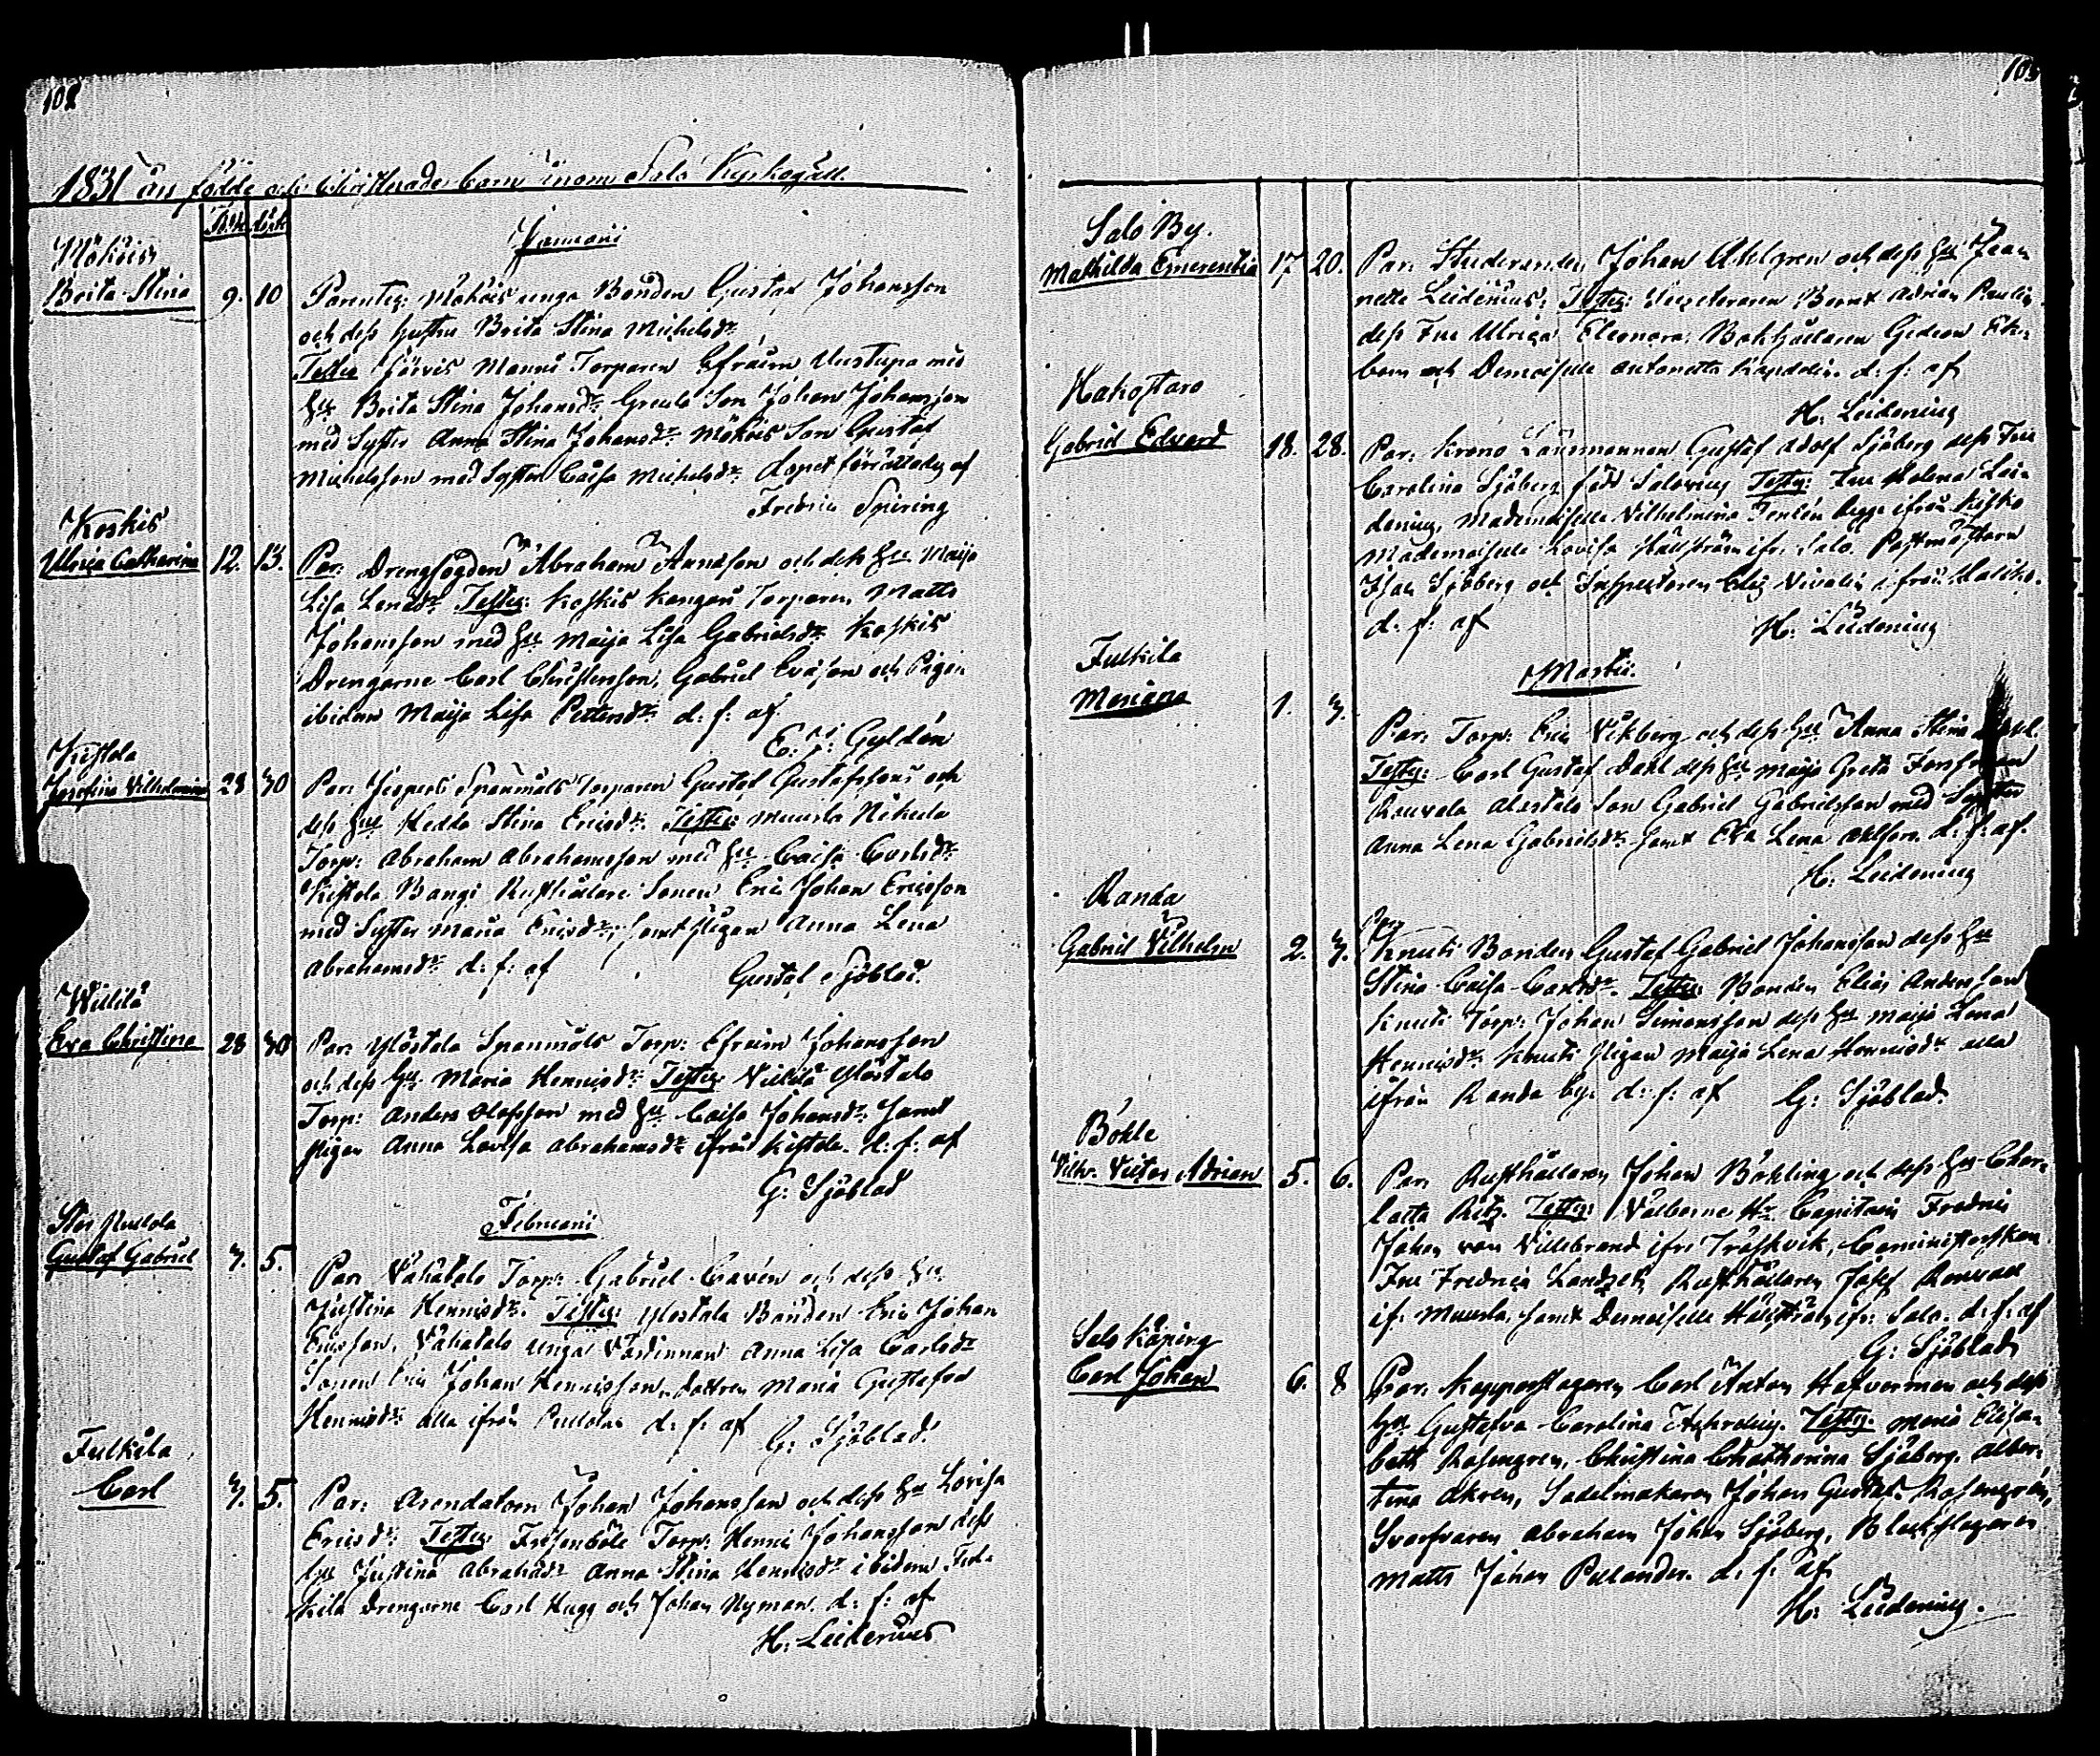 102
1831 års födde och Christnade barn inom Salo Kyrkogäll
Född döpt
Januarii
Möhöis
Brita Stina 9. 10 Parentes: Möhöis unga Bonden Gustaf Johansson
och dess hustru Brita Stina Michelsdr
Testes Manni Torparen Efraim med
hu Brita Stina Johansdr Son Johan Johansson
med Syster Anna Stina Johansdr Möhöis Son Gustaf
Michelsson med Syster Caisa Michelsdr Dopet förrättades af
Fredric Spiring
Koskis
Ulrica Catharina 12. 13. Par: Drengfogden Abraham Annasson och dess hu Maija
Lisa Lenasdr Testes: Koskis Kangars Torparen Matts
Johansson med hu Maija Lisa Gabrielsdr Koskis
Drengarne Carl Christersson, Gabriel Evason och Pigan
ibidem Maija Lisa Pettersdr d: f: af
E: J: Gyldén
Kistola
Josefina Vilhelmina 28 30 Par: Jesperls Spanmåls Torparen Gustaf Gustafssons och
dess hu Hedda Stina Ericsdr Testes: Muurla Nikula
Torp: Abraham Abrahamsson med hu Caisa Carlsdr
Kistola Bangi Rusthållare Sonen Eric Johan Ericsson
med Syster Maria Ericsdr, samt Pigan Anna Lena
Abrahamsdr d: f: af Gustaf Sjöblad.
Willilä
Eva Christina 28 30 Par: Ylöstalo Spanmåls Torp: Efraim Johansson
och dess hu Maria Henricsdr Testes: Villilä Ylöstalo
Torp: Anders Olofsson med hu Caisa Johansdr samt
pigan Anna Lovisa Abrahamsdr ifrån Kistola. d: f: af
G: Sjöblad
Februarii
Stor Pullola
Gustaf Gabriel 3. 5. Par: Vähätalo Torp: Gabriel Cavén och dess hu
Justina Henricsdr. Testes: Ylöstalo Bonden Eric Johan
Ericsson, Vähätalo unga Värdinnan Anna Lisa Carlsdr
Sonen Eric Johan Henricsson, dottren Maria Gustafva
Henricsdr alla ifrån Pullola d: f: af G: Sjöblad.
Fulkila
Carl 3. 5. Par: Arendatorn Johan Johansson och dess hu Lovisa
Ericsdr Testes: Frisenböle Torp: Henric Johansson dess
hu Justina Abrahadr Anna Stina Henricsdr ibidem Ful-
kila Drengarne Carl Hugg och Johan Nyman. d: f: af
H: Leidenius
103
Salo By.
Mathilda Emerentia 17 20. Par: Studeranden Johan Ahlgren och dess hu Jean-
nette Leidenius, Testes: Secreteraren Bernt Adrian Paulin
dess Fru Ulrica Eleonora, Bokhållaren Gideon Eke-
bom och Demoiselle Antonetta d: f: af
H: Leidenius
Hakostaro
Gabriel Edvard 18. 28. Par: Krono Länsmannen Gustaf Adolf Sjöberg dess Fru
Carolina Sjöberg född Salovius Testes: Fru Helena Lei-
denius, Mademoiselle Vilhelmina ifrån Kisko
Mademoiselle Lovisa Hällström ifr: Salo. Postmästarn
Isac Sjöberg och Inspectoren Elis Nivalin ifrån Haliko.
d: f: af H: Leidenius
Martii.
Fulkila
Mariana 1. 3. Par: Torp: Eric Vikberg och dess hu Anna Stina
Testes: Carl Gustaf Dahl dess hu Maija Greta
Rouvala Alastalo Son Gabriel Gabrielsson med Syster
Anna Lena Gabrielsdr samt Eva Lena d: f: af.
H: Leidenius
Randa
Gabriel Vilhelm 2. 3. Par: Knuti Bonden Gustaf Gabriel Johansson dess hu
Stina Caisa Carlsdr. Testes: Bonden Elias Andersson
Knuti Torp: Johan Simonsson dess hu Maija Lena
Henricsdr Knuti Pigan Maija Lena Henricsdr alla
ifrån Randa by. d: f: af G: Sjöblad.
Böhle
Vilh. Victor Adrian 5. 6. Par: Rusthållaren Johan Böhling och dess hu Char-
lotta Retz. Testes: Välborne Hr Capitain Fredric
Johan von Villebrand ifr: Träskvik, Comministerskan
Fru Fredrica Landzett, Rusthållaren Josef Rouvall
if: Muurla, samt Demoiselle Hällström ifr: Salo. d: f: af
G: Sjöblad
Salo Köping
Carl Johan 6. 8 Par: Kopparslagaren Carl Anton Hafverman och dess
hu Gustafva Carolina Testes: Maria Elisa-
beth Rosengren, Christina Chatharina Sjöberg, Alber-
tina Akren, Sadelmakaren Johan Gustaf Rosengrén,
Svarfvaren Abraham Johan Sjöberg, Bleckslagaren
Matts Johan Pulander. d. f: af
H: Leidenius.